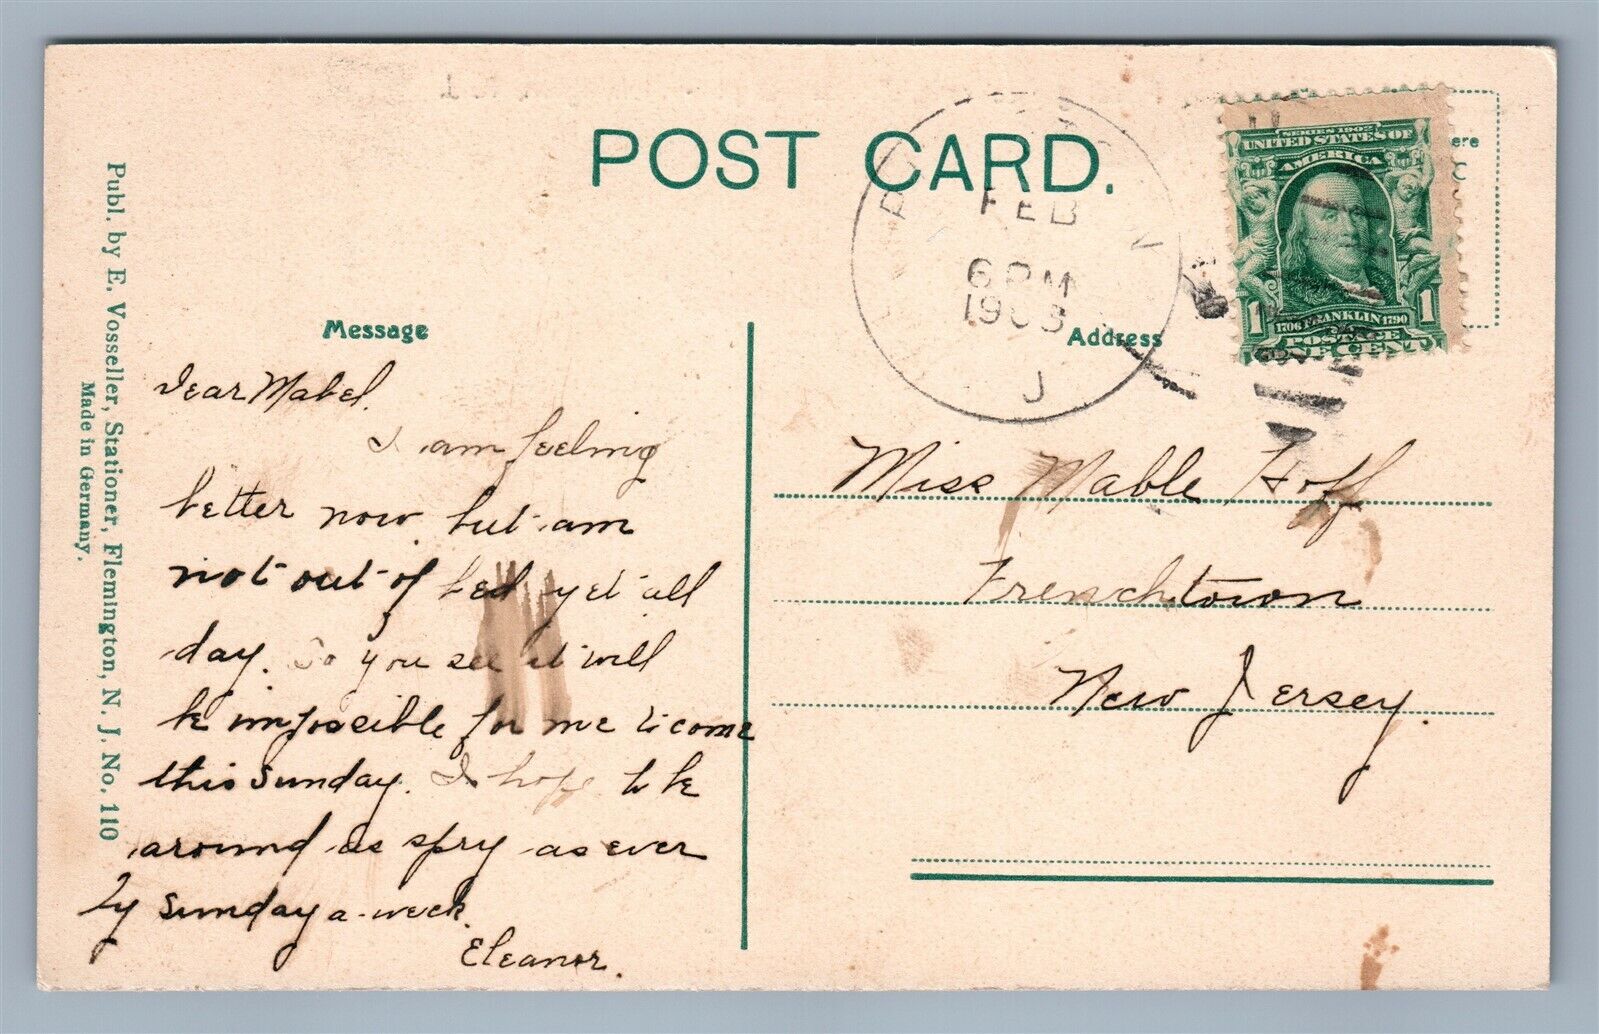 POST CARD.
FEB
6 PM
1908
J
SERIES 1902
UNITED STATES OF
AMERICA
1706 FRANKLIN 1790
POSTAGE
1 ONE CENT 1
ere
Message
Address
Dear Mabel.
I am feeling
better now but am
not out of bed yet all
day. So you see it will
be impossible for me to come
this Sunday. I hope to be
around as spry as ever
by Sunday a-week.
Eleanor.
Miss Mable Hoff
Frenchtown
New Jersey.
Publ. by E. Vosseller, Stationer, Flemington, N. J. No. 110
Made in Germany.